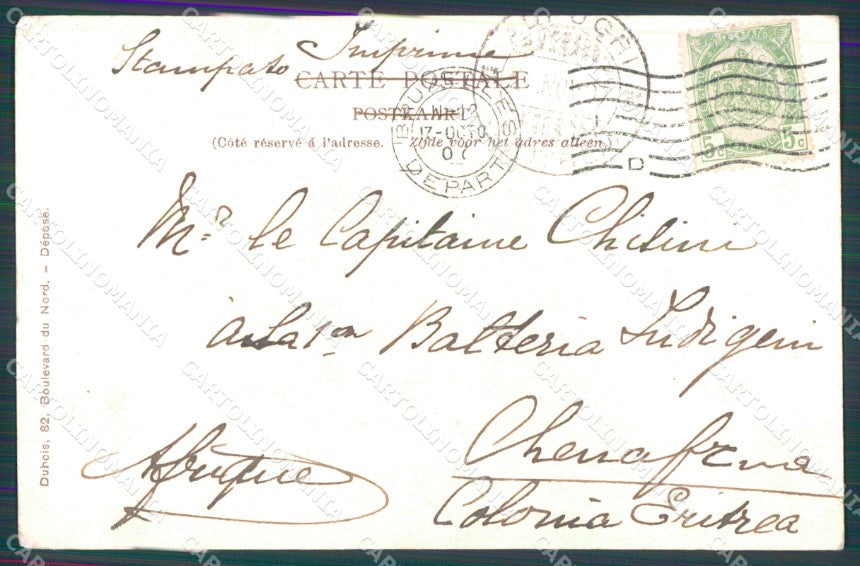 Stampato Imprimé
CARTE POSTALE
POSTKAART
(Côté réservé à l'adresse. Zijde voor het adres alleen.)
BRUXELLES
17-OCTO
07
DEPART
D
5c 5c
Mr le Capitaine Chisini
à la 1a Batteria Indigeni
Chenafena
Afrique
Colonia Eritrea
Dubois, 82, Boulevard du Nord. — Déposé.
CARTOLINOMANIA